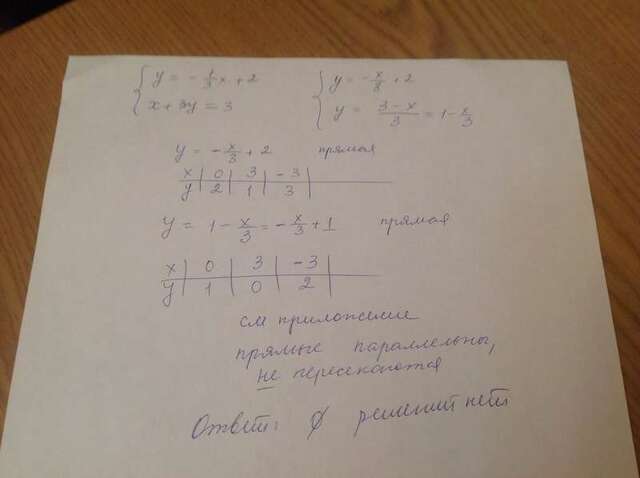 { y = -1/3 x + 2
x + 3y = 3
{ y = -x/3 + 2
y = (3-x)/3 = 1 - x/3
y = -x/3 + 2 прямая
x | 0 | 3 | -3 |
y | 2 | 1 | 3 |
y = 1 - x/3 = -x/3 + 1 прямая
x | 0 | 3 | -3 |
y | 1 | 0 | 2 |
см приложение
прямые параллельны,
не пересекаются
Ответ: ∅ решений нет